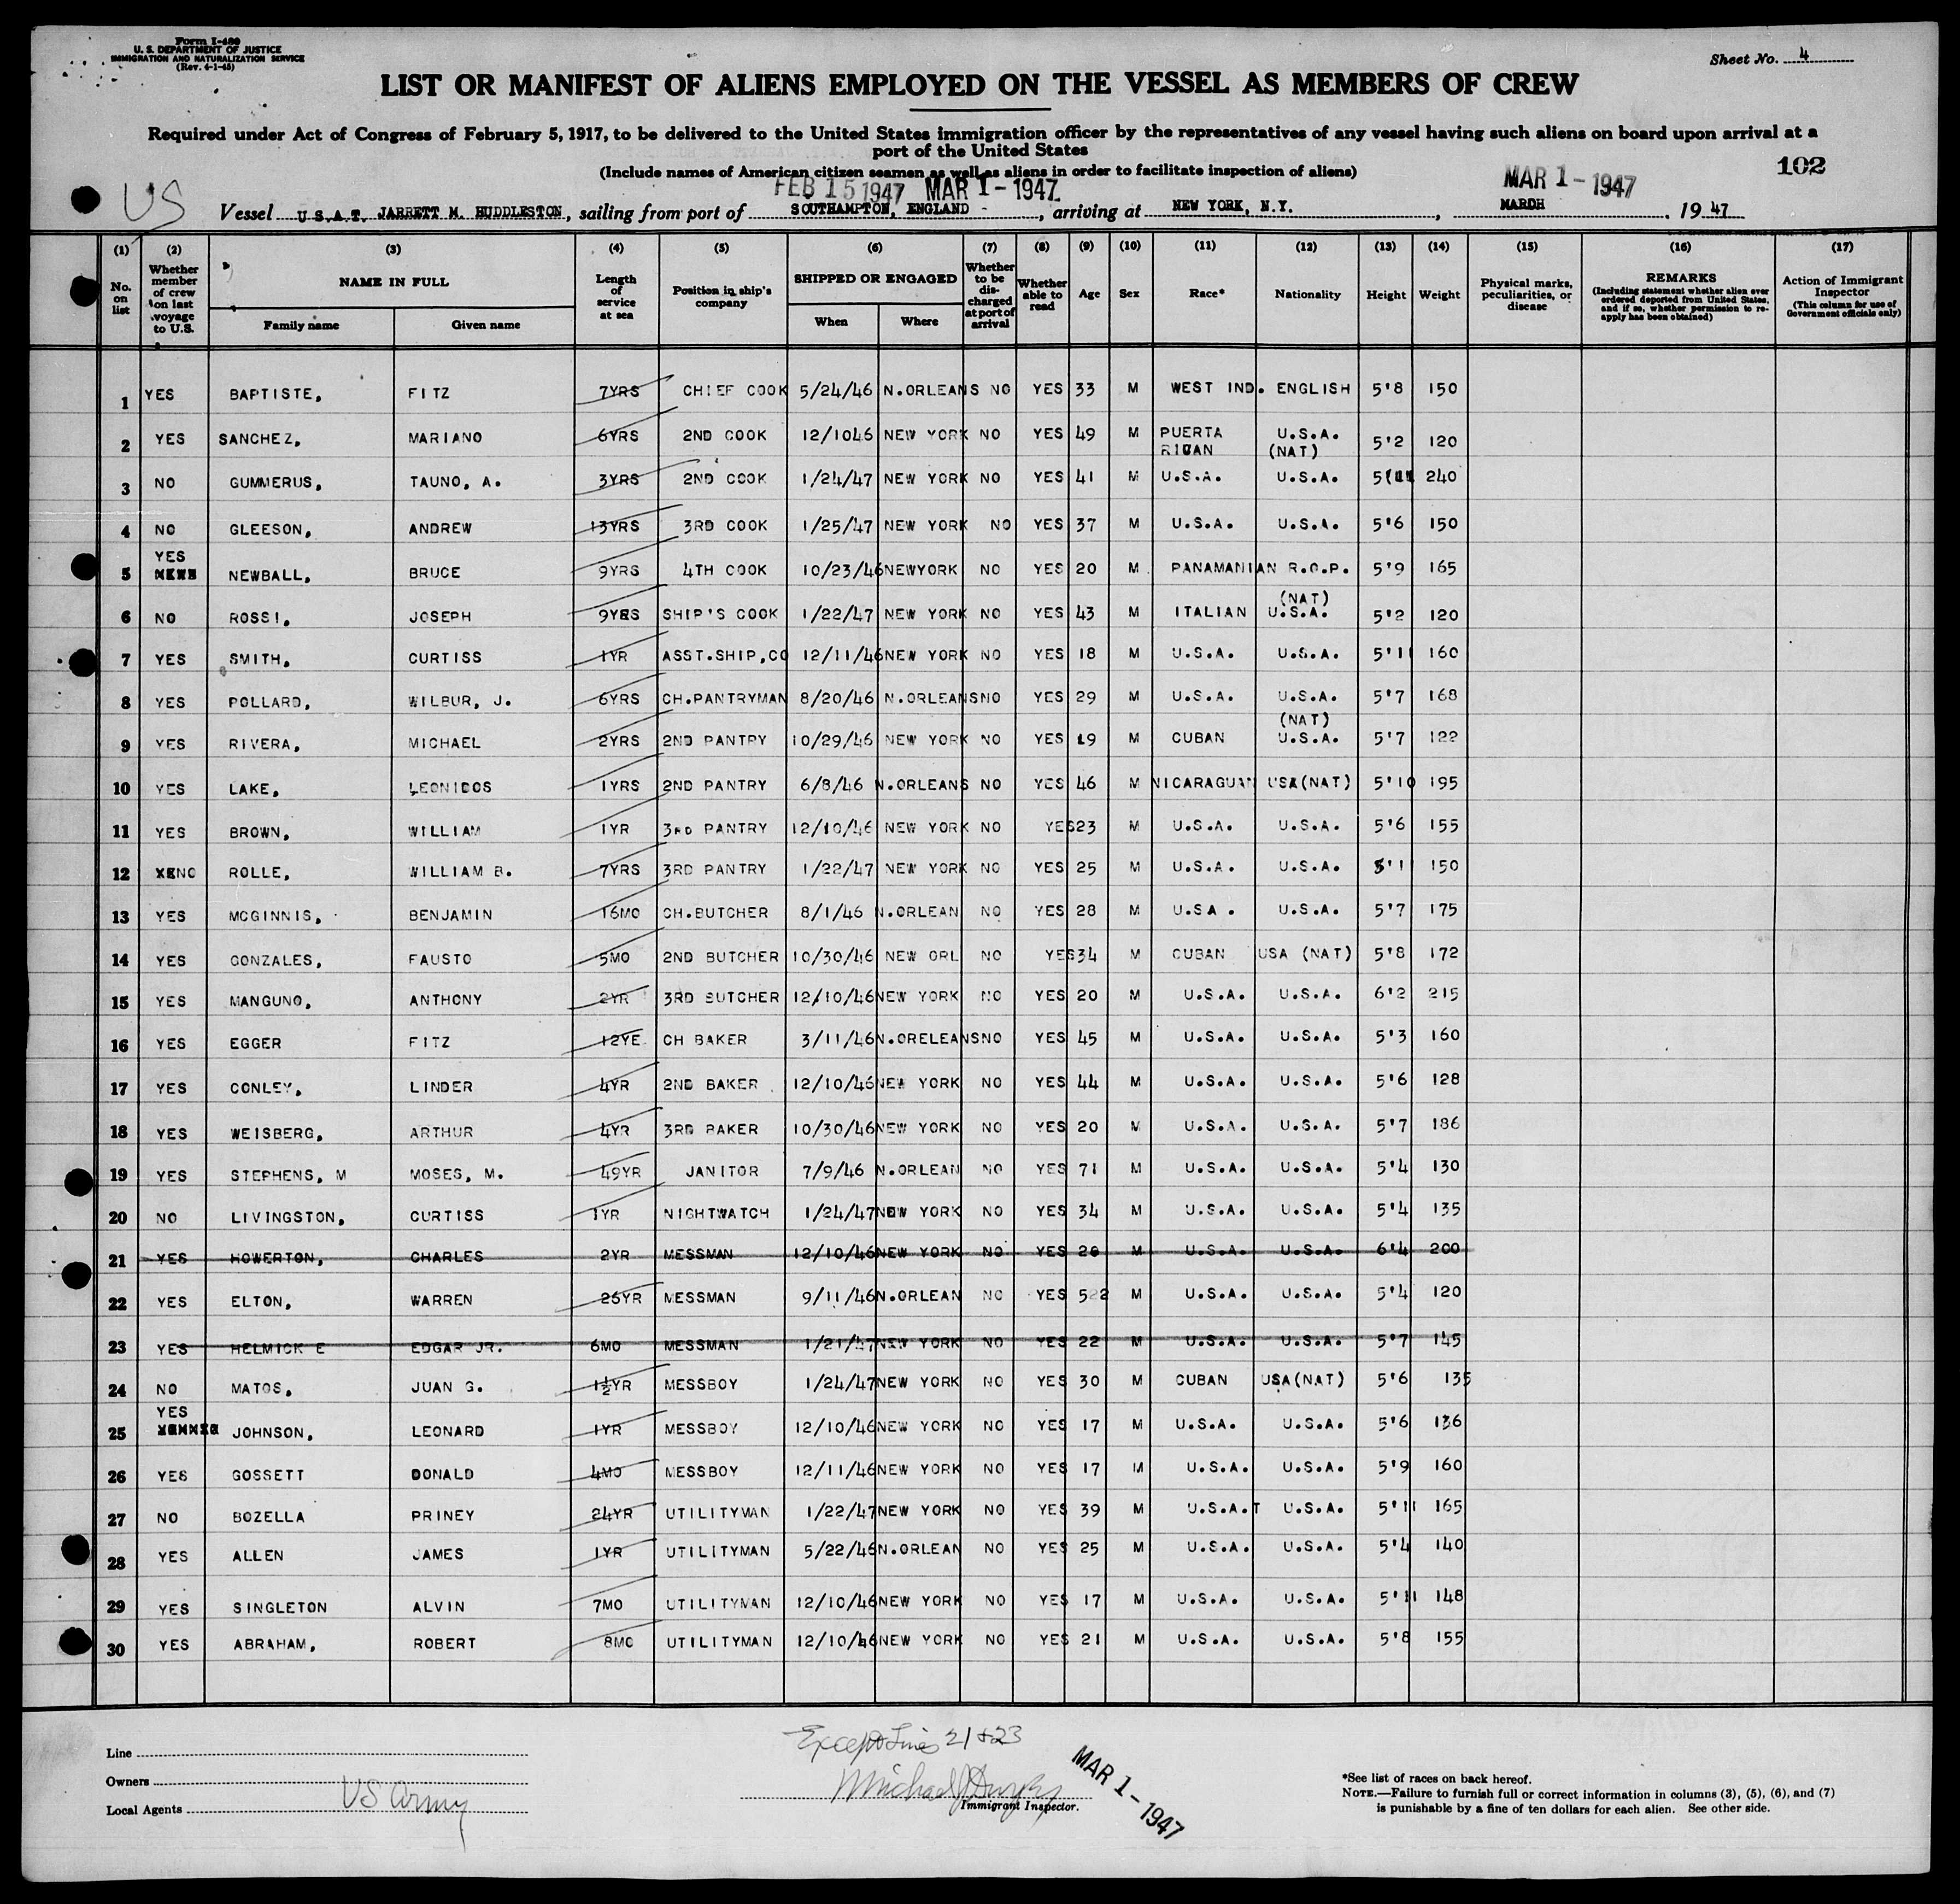 Form I-489
U. S. DEPARTMENT OF JUSTICE
IMMIGRATION AND NATURALIZATION SERVICE
(Rev. 4-1-45)
Sheet No. 4
LIST OR MANIFEST OF ALIENS EMPLOYED ON THE VESSEL AS MEMBERS OF CREW
Required under Act of Congress of February 5, 1917, to be delivered to the United States immigration officer by the representatives of any vessel having such aliens on board upon arrival at a
port of the United States
102
(Include names of American citizen seamen as well as aliens in order to facilitate inspection of aliens)
FEB 15 1947 MAR 1 - 1947 MAR 1 - 1947
US
Vessel U.S.A.T. JARRETT M. HUDDLESTON, sailing from port of SOUTHAMPTON, ENGLAND, arriving at NEW YORK, N.Y., MARDH, 19 47
(1) (2) (3) (4) (5) (6) (7) (8) (9) (10) (11) (12) (13) (14) (15) (16) (17)
No. on list
Whether member of crew on last voyage to U.S.
NAME IN FULL
Family name
Given name
Length of service at sea
Position in ship's company
SHIPPED OR ENGAGED
When
Where
Whether to be discharged at port of arrival
Whether able to read
Age
Sex
Race*
Nationality
Height
Weight
Physical marks, peculiarities, or disease
REMARKS
(Including statement whether alien ever ordered deported from United States, and if so, whether permission to re-apply has been obtained)
Action of Immigrant Inspector
(This column for use of Government officials only)
1 YES BAPTISTE, FITZ 7YRS CHIEF COOK 5/24/46 N.ORLEANS NO YES 33 M WEST IND. ENGLISH 5'8 150
2 YES SANCHEZ, MARIANO 6YRS 2ND COOK 12/1046 NEW YORK NO YES 49 M PUERTA RICAN U.S.A. (NAT) 5'2 120
3 NO GUMMERUS, TAUNO, A. 3YRS 2ND COOK 1/24/47 NEW YORK NO YES 41 M U.S.A. U.S.A. 240
4 NO GLEESON, ANDREW 13YRS 3RD COOK 1/25/47 NEW YORK NO YES 37 M U.S.A. U.S.A. 5'6 150
5 YES NEWBALL, BRUCE 9YRS 4TH COOK 10/23/46 NEWYORK NO YES 20 M PANAMANIAN R.O.P. 5'9 165
6 NO ROSSI, JOSEPH 9YRS SHIP'S COOK 1/22/47 NEW YORK NO YES 43 M ITALIAN (NAT) U.S.A. 5'2 120
7 YES SMITH, CURTISS 1YR ASST.SHIP,CO 12/11/46 NEW YORK NO YES 18 M U.S.A. U.S.A. 5'11 160
8 YES POLLARD, WILBUR, J. 6YRS CH.PANTRYMAN 8/20/46 N.ORLEANS NO YES 29 M U.S.A. U.S.A. 5'7 168
9 YES RIVERA, MICHAEL 2YRS 2ND PANTRY 10/29/46 NEW YORK NO YES 19 M CUBAN (NAT) U.S.A. 5'7 122
10 YES LAKE, LEONIDOS 1YRS 2ND PANTRY 6/8/46 N.ORLEANS NO YES 46 M NICARAGUAN USA(NAT) 5'10 195
11 YES BROWN, WILLIAM 1YR 3RD PANTRY 12/10/46 NEW YORK NO YES 23 M U.S.A. U.S.A. 5'6 155
12 NO ROLLE, WILLIAM B. 7YRS 3RD PANTRY 1/22/47 NEW YORK NO YES 25 M U.S.A. U.S.A. 5'1 150
13 YES MCGINNIS, BENJAMIN 16MO CH.BUTCHER 8/1/46 N.ORLEAN NO YES 28 M U.SA . U.S.A. 5'7 175
14 YES GONZALES, FAUSTO 5MO 2ND BUTCHER 10/30/46 NEW ORL NO YES 34 M CUBAN USA (NAT) 5'8 172
15 YES MANGUNO, ANTHONY 2YR 3RD BUTCHER 12/10/46 NEW YORK NO YES 20 M U.S.A. U.S.A. 6'2 215
16 YES EGGER FITZ 12YE. CH BAKER 3/11/46 N.ORELEANS NO YES 45 M U.S.A. U.S.A. 5'3 160
17 YES CONLEY, LINDER 4YR 2ND BAKER 12/10/46 NEW YORK NO YES 44 M U.S.A. U.S.A. 5'6 128
18 YES WEISBERG, ARTHUR 4YR 3RD BAKER 10/30/46 NEW YORK NO YES 20 M U.S.A. U.S.A. 5'7 186
19 YES STEPHENS, M MOSES, M. 49YR JANITOR 7/9/46 N.ORLEAN NO YES 71 M U.S.A. U.S.A. 5'4 130
20 NO LIVINGSTON, CURTISS 1YR NIGHTWATCH 1/24/47 NEW YORK NO YES 34 M U.S.A. U.S.A. 5'4 135
21 YES HOWERTON, CHARLES 2YR MESSMAN 12/10/46 NEW YORK NO YES 20 M U.S.A. U.S.A. 6'4 200
22 YES ELTON, WARREN 26YR MESSMAN 9/11/46 N.ORLEAN NO YES 52 M U.S.A. U.S.A. 5'4 120
23 YES HELMICK E EDGAR JR. 6MO MESSMAN 1/21/47 NEW YORK NO YES 22 M U.S.A. U.S.A. 5'7 145
24 NO MATOS, JUAN G. 1½YR MESSBOY 1/24/47 NEW YORK NO YES 30 M CUBAN USA(NAT) 5'6 135
25 YES JOHNSON, LEONARD 1YR MESSBOY 12/10/46 NEW YORK NO YES 17 M U.S.A. U.S.A. 5'6 136
26 YES GOSSETT DONALD 4MO MESSBOY 12/11/46 NEW YORK NO YES 17 M U.S.A. U.S.A. 5'9 160
27 NO BOZELLA PRINEY 24YR UTILITYMAN 1/22/47 NEW YORK NO YES 39 M U.S.A.T U.S.A. 5'11 165
28 YES ALLEN JAMES 1YR UTILITYMAN 5/22/46 N.ORLEAN NO YES 25 M U.S.A. U.S.A. 5'4 140
29 YES SINGLETON ALVIN 7MO UTILITYMAN 12/10/46 NEW YORK NO YES 17 M U.S.A. U.S.A. 5'11 148
30 YES ABRAHAM, ROBERT 8MO UTILITYMAN 12/10/46 NEW YORK NO YES 21 M U.S.A. U.S.A. 5'8 155
Except Lines 21 & 23
Line
Owners
Local Agents US Army
Immigrant Inspector.
MAR 1 - 1947
*See list of races on back hereof.
NOTE.—Failure to furnish full or correct information in columns (3), (5), (6), and (7)
is punishable by a fine of ten dollars for each alien. See other side.